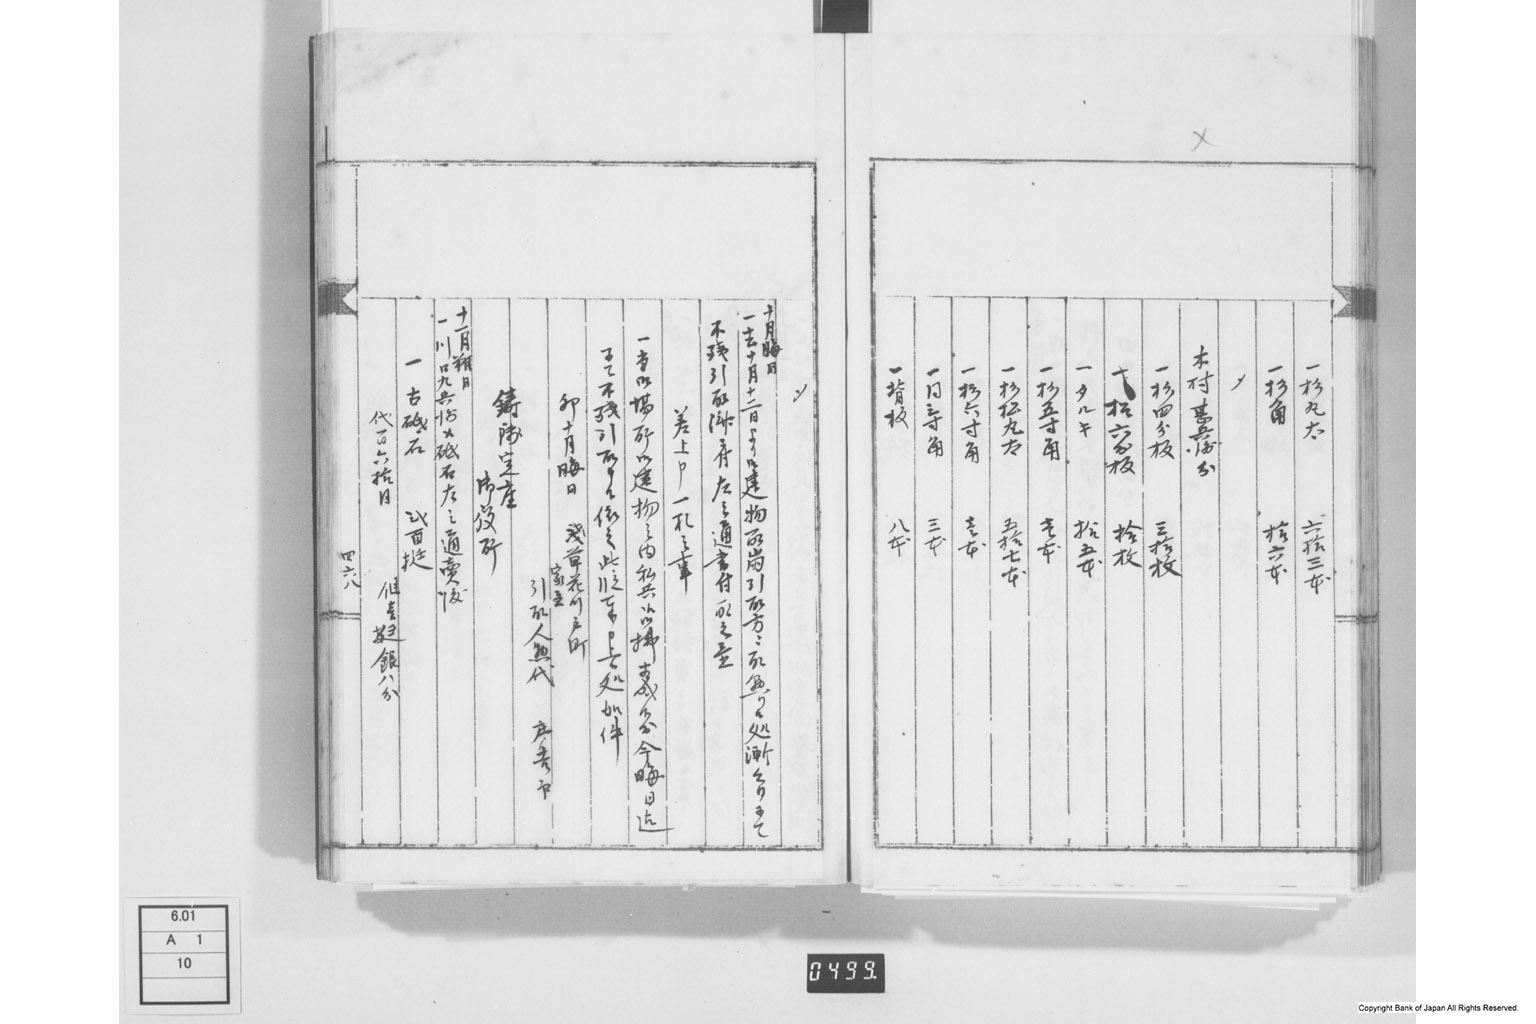 一杉丸太 六拾三本
一杉角 拾六本
〆
木村甚兵衛分
一杉四分板 三拾枚
一松六分板 拾枚
一タルキ 拾五本
一杉五寸角 壱本
一杉松丸太 五拾七本
一杉六寸角 壱本
一同三寸角 三本
一背板 八本
〆
十月晦日
一去十月十二日より御建物取崩引取方ニ取懸り候処漸々ニ而
不残引取済ニ付左之通書付取之置
差上申一札之事
一当御場所御建物之内私共御払 分今晦日迄
ニ而不残引取申候依之此段奉申上候処如件
卯十月晦日 浅草花川戸町
家主
引取人惣代 庄吉印
鋳銭定座
御役所
十一月朔日
一川口九兵衛 砥石左之通売渡
一古砥石 弐百挺
代百六拾目 但壱挺銀八分
四六八
X
6.01
A 1
10
0499.
Copyright Bank of Japan All Rights Reserved.